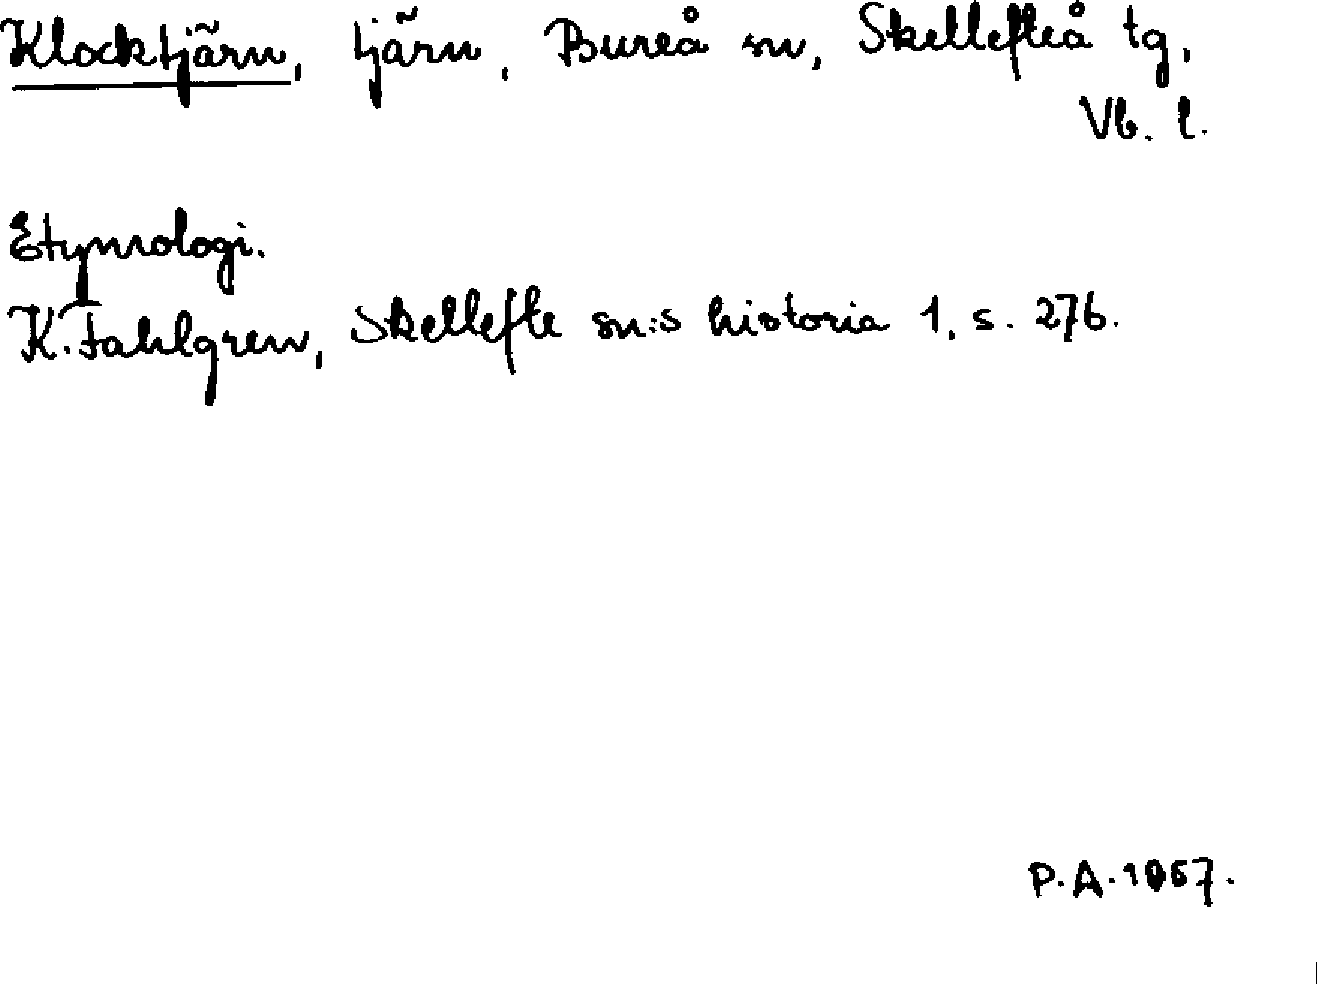 Klocktjärn, tjärn, Bureå sn, Skellefteå tg,
Vb. l.
Etymologi.
K. Fahlgren, Skellefte sn:s historia 1, s. 276.
P.A. 1957.